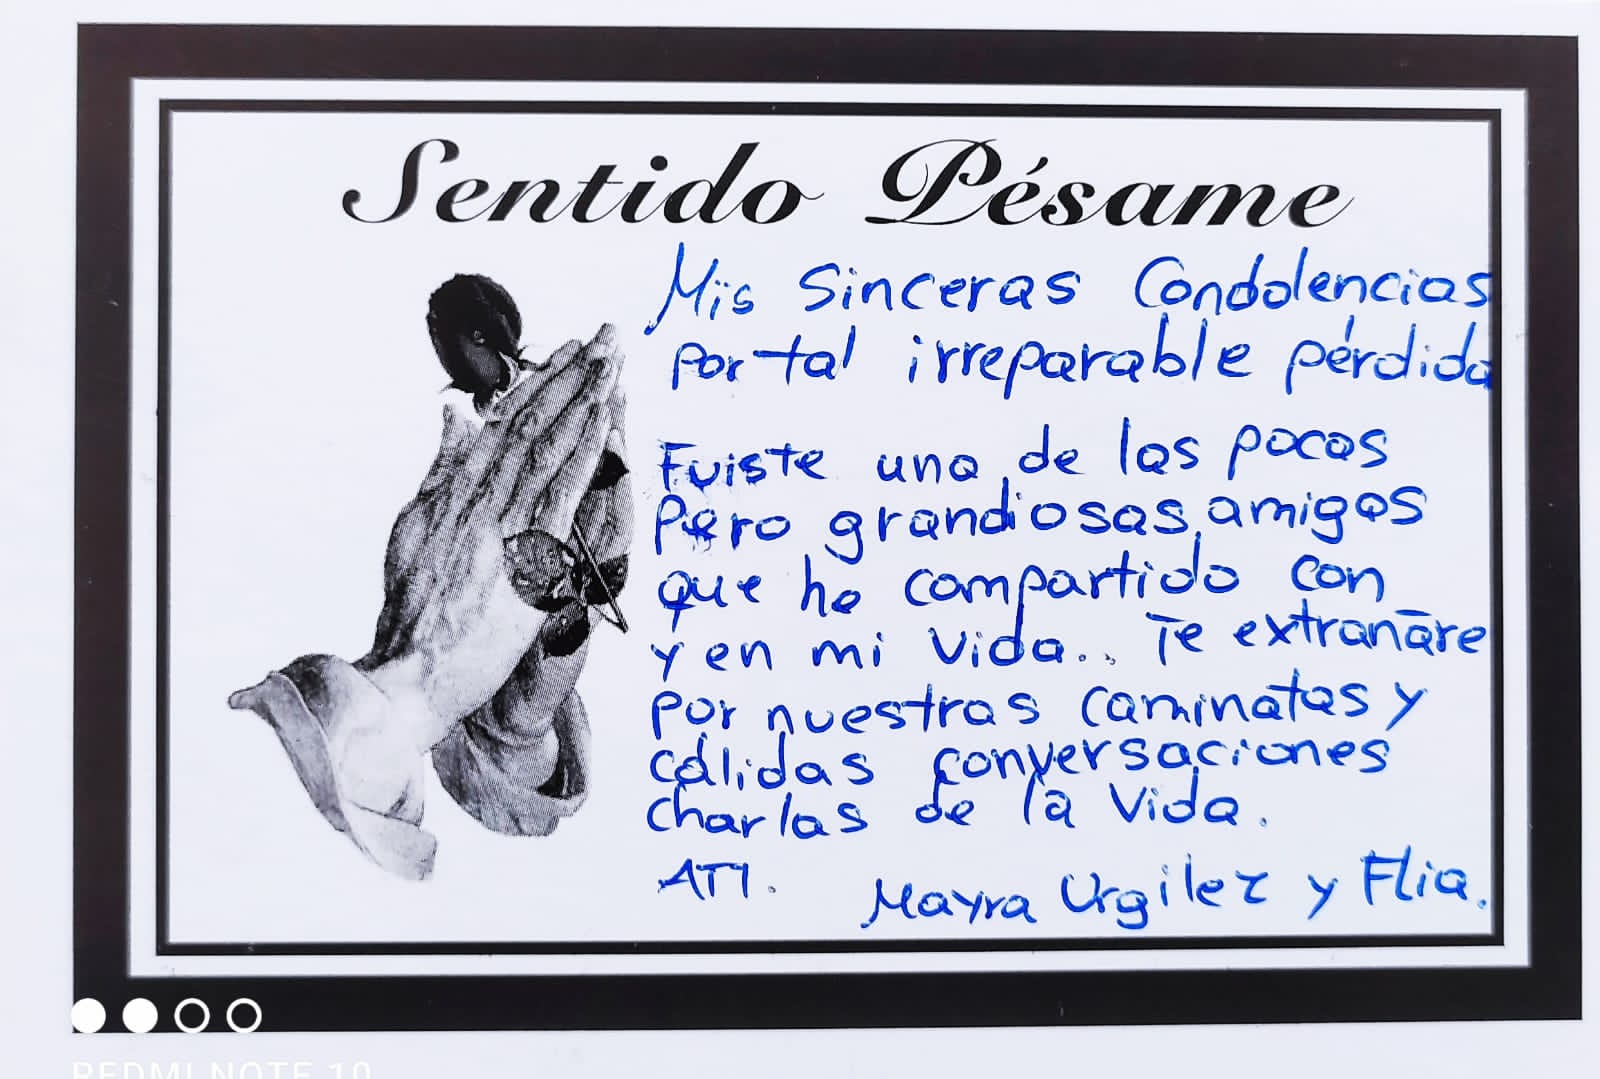 Sentido Pésame
Mis Sinceras Condolencias
por tal irreparable pérdida
Fuiste una de las pocas
Pero grandiosas amigas
que he compartido con
y en mi vida.. Te extrañare
por nuestras caminatas y
cálidas conversaciones
charlas de la vida.
ATT.
Mayra Urgilez y Flia.
REDMI NOTE 10